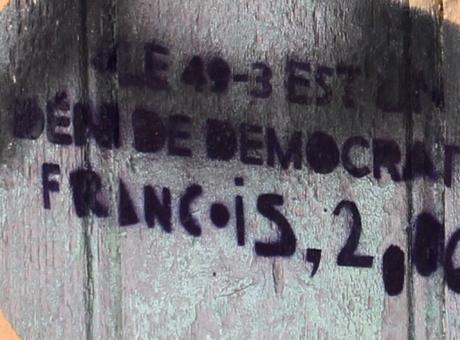 "LE 49-3 EST UN
DÉNI DE DEMOCRAT
FRANCOIS, 2,00